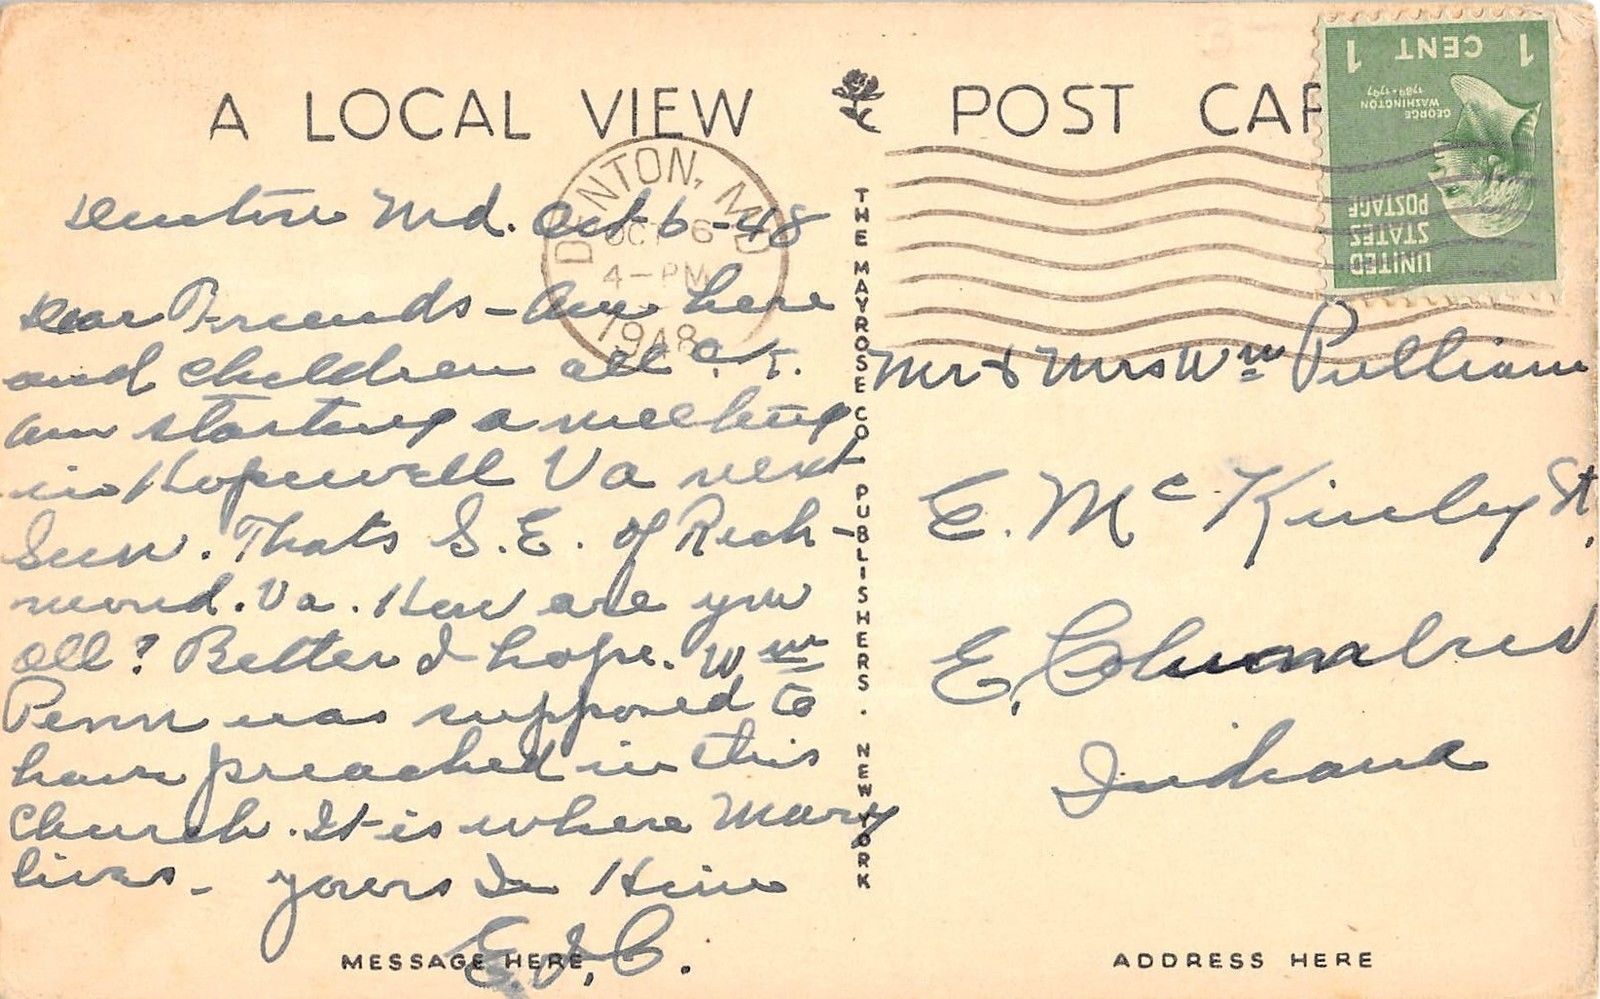 A LOCAL VIEW
POST CAR
1 CENT 1
GEORGE
WASHINGTON
1789 • 1797
UNITED
STATES
POSTAGE
DENTON, MD
OCT 6
4-PM
1948
THE MAYROSE CO. PUBLISHERS. NEW YORK
Denton Md. Oct 6-48
Dear Friends - Am here
and children all O.K.
Am starting a meeting
in Hopewell Va next
Sun. Thats S.E. of Rich-
mond. Va. How are you
all? Better I hope. Wm
Penn was supposed to
have preached in this
Church. It is where Mary
lives - yours In Him
E.J.C.
Mr & Mrs Wm Pulliam
E. McKinley St.
E. Columbus
Indiana
MESSAGE HERE
ADDRESS HERE